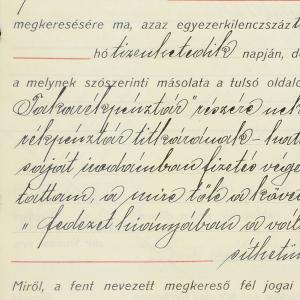 megkeresésére ma, azaz egyezerkilenczszáz
hó tizenhetedik napján, d
a melynek szószerinti másolata a tulsó oldal
Takarékpénztár" részére
rékpénztár titkárának
saját irodáiban fizetés vége
tattam, a mire tőle a köve
" fedezet hiányában a vál
síthetü
Miről, a fent nevezett megkereső fél jogai